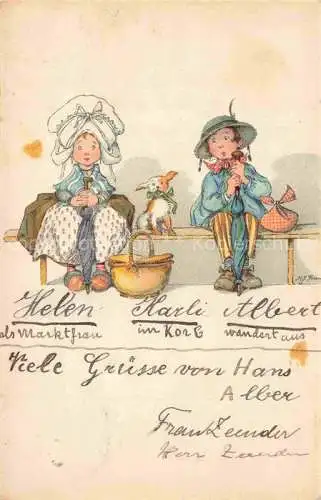 Helen Karli Albert
als Marktfrau im Korb wandert aus
Viele Grüsse von Hans
Alber
Frau Zeender
Herr Zeender